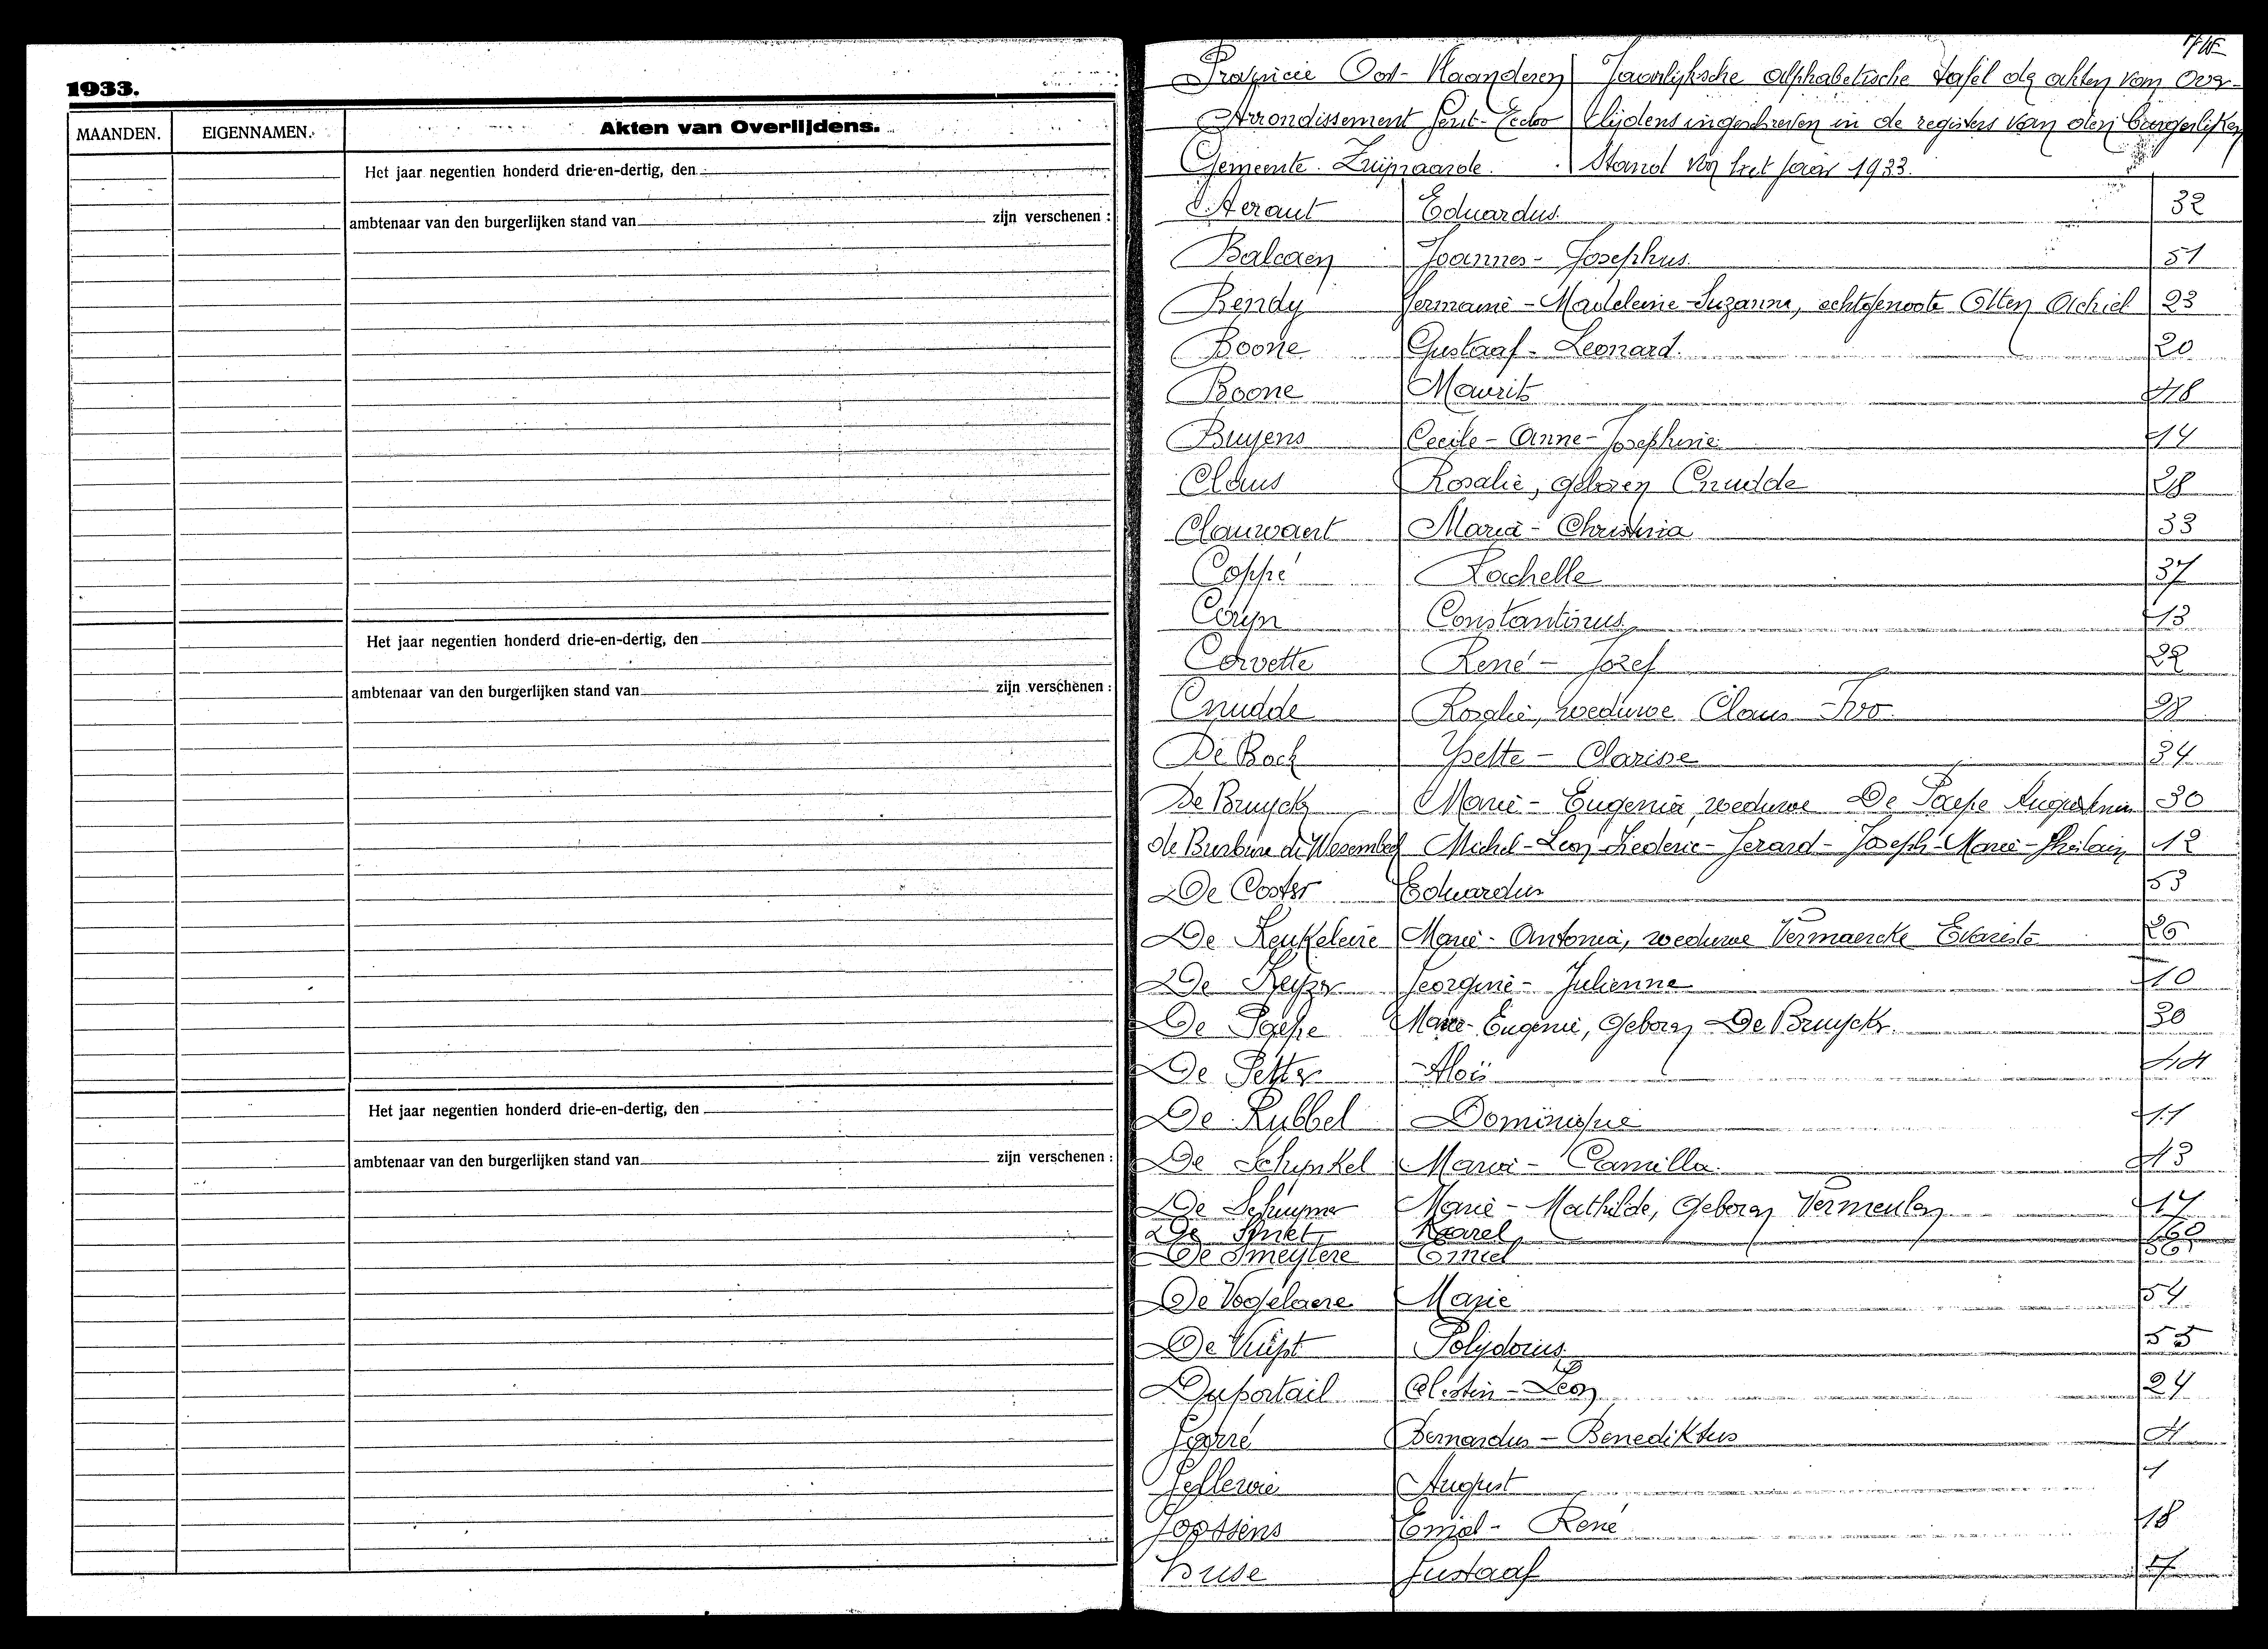 1933.
MAANDEN. EIGENNAMEN. Akten van Overlijdens.
Het jaar negentien honderd drie-en-dertig, den
ambtenaar van den burgerlijken stand van zijn verschenen :
Het jaar negentien honderd drie-en-dertig, den
ambtenaar van den burgerlijken stand van zijn verschenen :
Het jaar negentien honderd drie-en-dertig, den
ambtenaar van den burgerlijken stand van zijn verschenen :
Provincie Oost-Vlaanderen Jaarlijksche alphabetische tafel der akten van Over-
Arrondissement Gent-Eecloo lijdens ingeschreven in de registers van den burgerlijken
Gemeente Zwijnaarde. Stand van het jaar 1933.
Aeraut Eduardus 32
Balcaen Joannes-Josephus 51
Bendy Germaine-Madeleine-Suzanna, echtgenoote Otten Achiel 23
Boone Gustaaf-Leonard. 20
Boone Maurits 48
Buyens Cecile-Anne-Josephine 14
Claus Rosalie, geboren Cnudde 28
Clauwaert Maria-Christina 33
Coppé Rachelle 37
Coryn Constantinus 13
Corvette René-Jozef 22
Cnudde Rosalie, weduwe Claus Ivo 28
De Bock Yvette-Clarisse 34
De Bruyck Marie-Eugenia, weduwe De Paepe Augustinus 30
de Burbure de Wesembeek Michel-Leon-Frederic-Gerard-Joseph-Marie-Ghislain 12
De Coster Eduardus 53
De Keukeleire Marie-Antonia, weduwe Vermaercke Evariste 26
De Keyzer Georgine-Julienne 10
De Paepe Marie-Eugenie, Geboren De Bruyck 30
De Petter Aloïs 44
De Rybbel Dominique 11
De Schynkel Maria-Camilla 43
De Schuymer Marie-Mathilde, Geboren Vermeulen 17
De Smet Karel 60
De Smeytere Emiel 56
De Vogelaere Marie 54
De Vuyst Polydorus 55
Duportail Celestin-Leon 24
Gorré Bernardus-Benediktus 4
August 1
Goossens Emiel-René 18
Buse Gustaaf